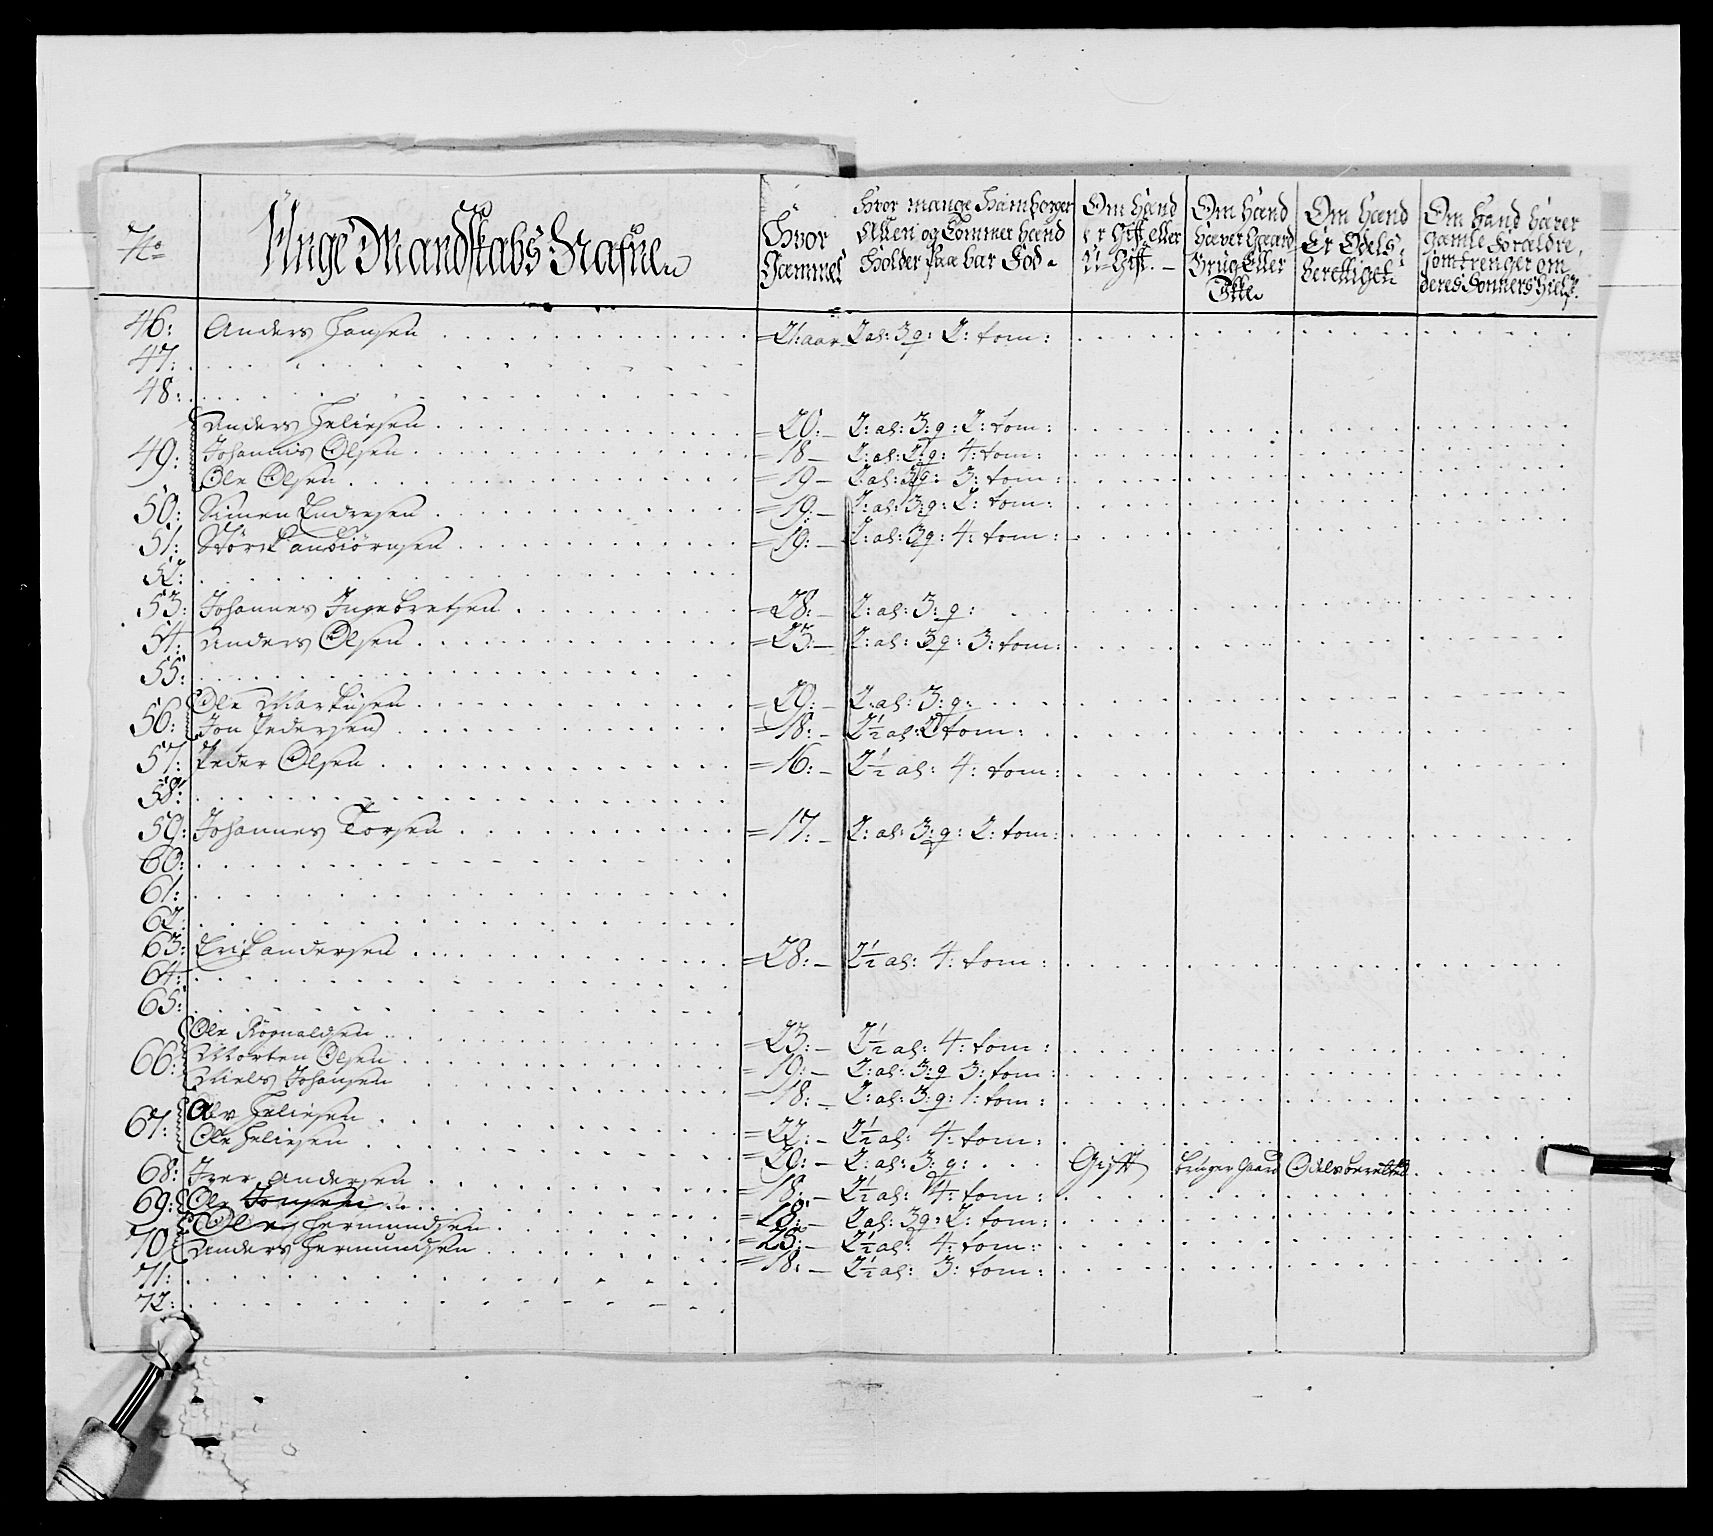 No
Unge Mandskabs Nafne
Hvor Gammel
Hvor mange Hamborger Allen og Tommer Hand Holder paa bar Fod
Om Hand er Gift eller U-Gift.
Om Hand Hæver Gaard Brug Eller Ikke
Om Hand Er Odels Berettiget
Om Hand Haver Gamle Forældre, som trenger om deres Sonners Hielp.
46: Anders Hansen = 21: aar 2 al: 3 q: 2: tom:
47:
48:
Anders Heliesen = 20: – 2: al: 3: q: 2: tom:
49: Johannis Olsen = 18 – 2: al: 2: q: 4: tom:
Ole Olsen = 19 – 2: al: 3 q: 3: tom:
50: Simen Endresen = 19: – 2: al: 3: q: 2: tom:
51: Størck andiørnsen = 19: – 2: al: 3 q: 4: tom:
52:
53: Johannes Ingebretsen = 28: – 2: al: 3: q:
54: Anders Olsen = 23: – 2: al: 3 q: 3: tom:
55:
Ole Markusen = 20: – 2: al: 3: q:
56: Jon Pedersen = 18: – 2½ al: 2 tom:
57: Peder Olsen = 16: – 2½ al: 4: tom:
58:
59: Johannes Torsen = 17: – 2: al: 3: q: 2: tom:
60:
61:
62:
63: Erik andersen = 28: – 2½ al: 4: tom:
64:
65:
Ole Rognaldsen = 23: – 2½ al: 4: tom:
66: Morten Olsen = 19: – 2: al: 3: q 3: tom:
Niels Johansen = 18: – 2: al: 3: q: 1: tom:
67: Heliesen = 22: – 2½ al: 4: tom:
Ole Heliesen = 20: – 2: al: 3: q: Gift bruger Gaard
68: Iver Andersen = 18: – 2½ al: 4: tom:
69: Ole Jonsen = 18: – 2 al: 3 q: 2: tom:
Ole Hermundsen = 25: – 2½ al: 4: tom:
70 Anders Hermundsen = 18: – 2½ al: 3: tom:
71:
72: